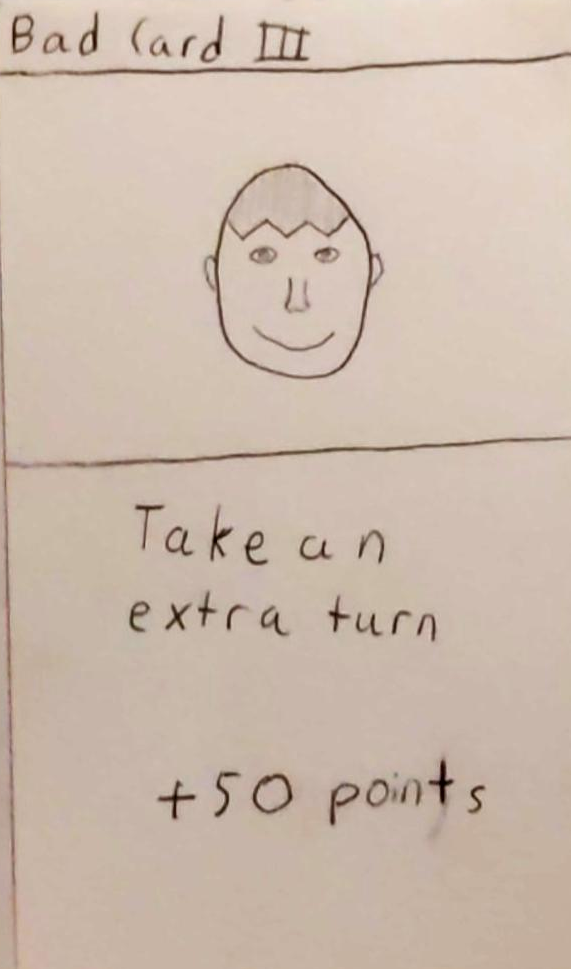 Bad Card III
Take an
extra turn
+50 points